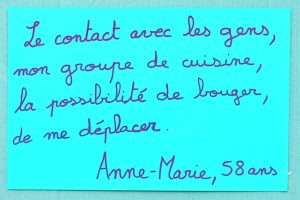 Le contact avec les gens,
mon groupe de cuisine,
la possibilité de bouger,
de me déplacer.
Anne-Marie, 58 ans